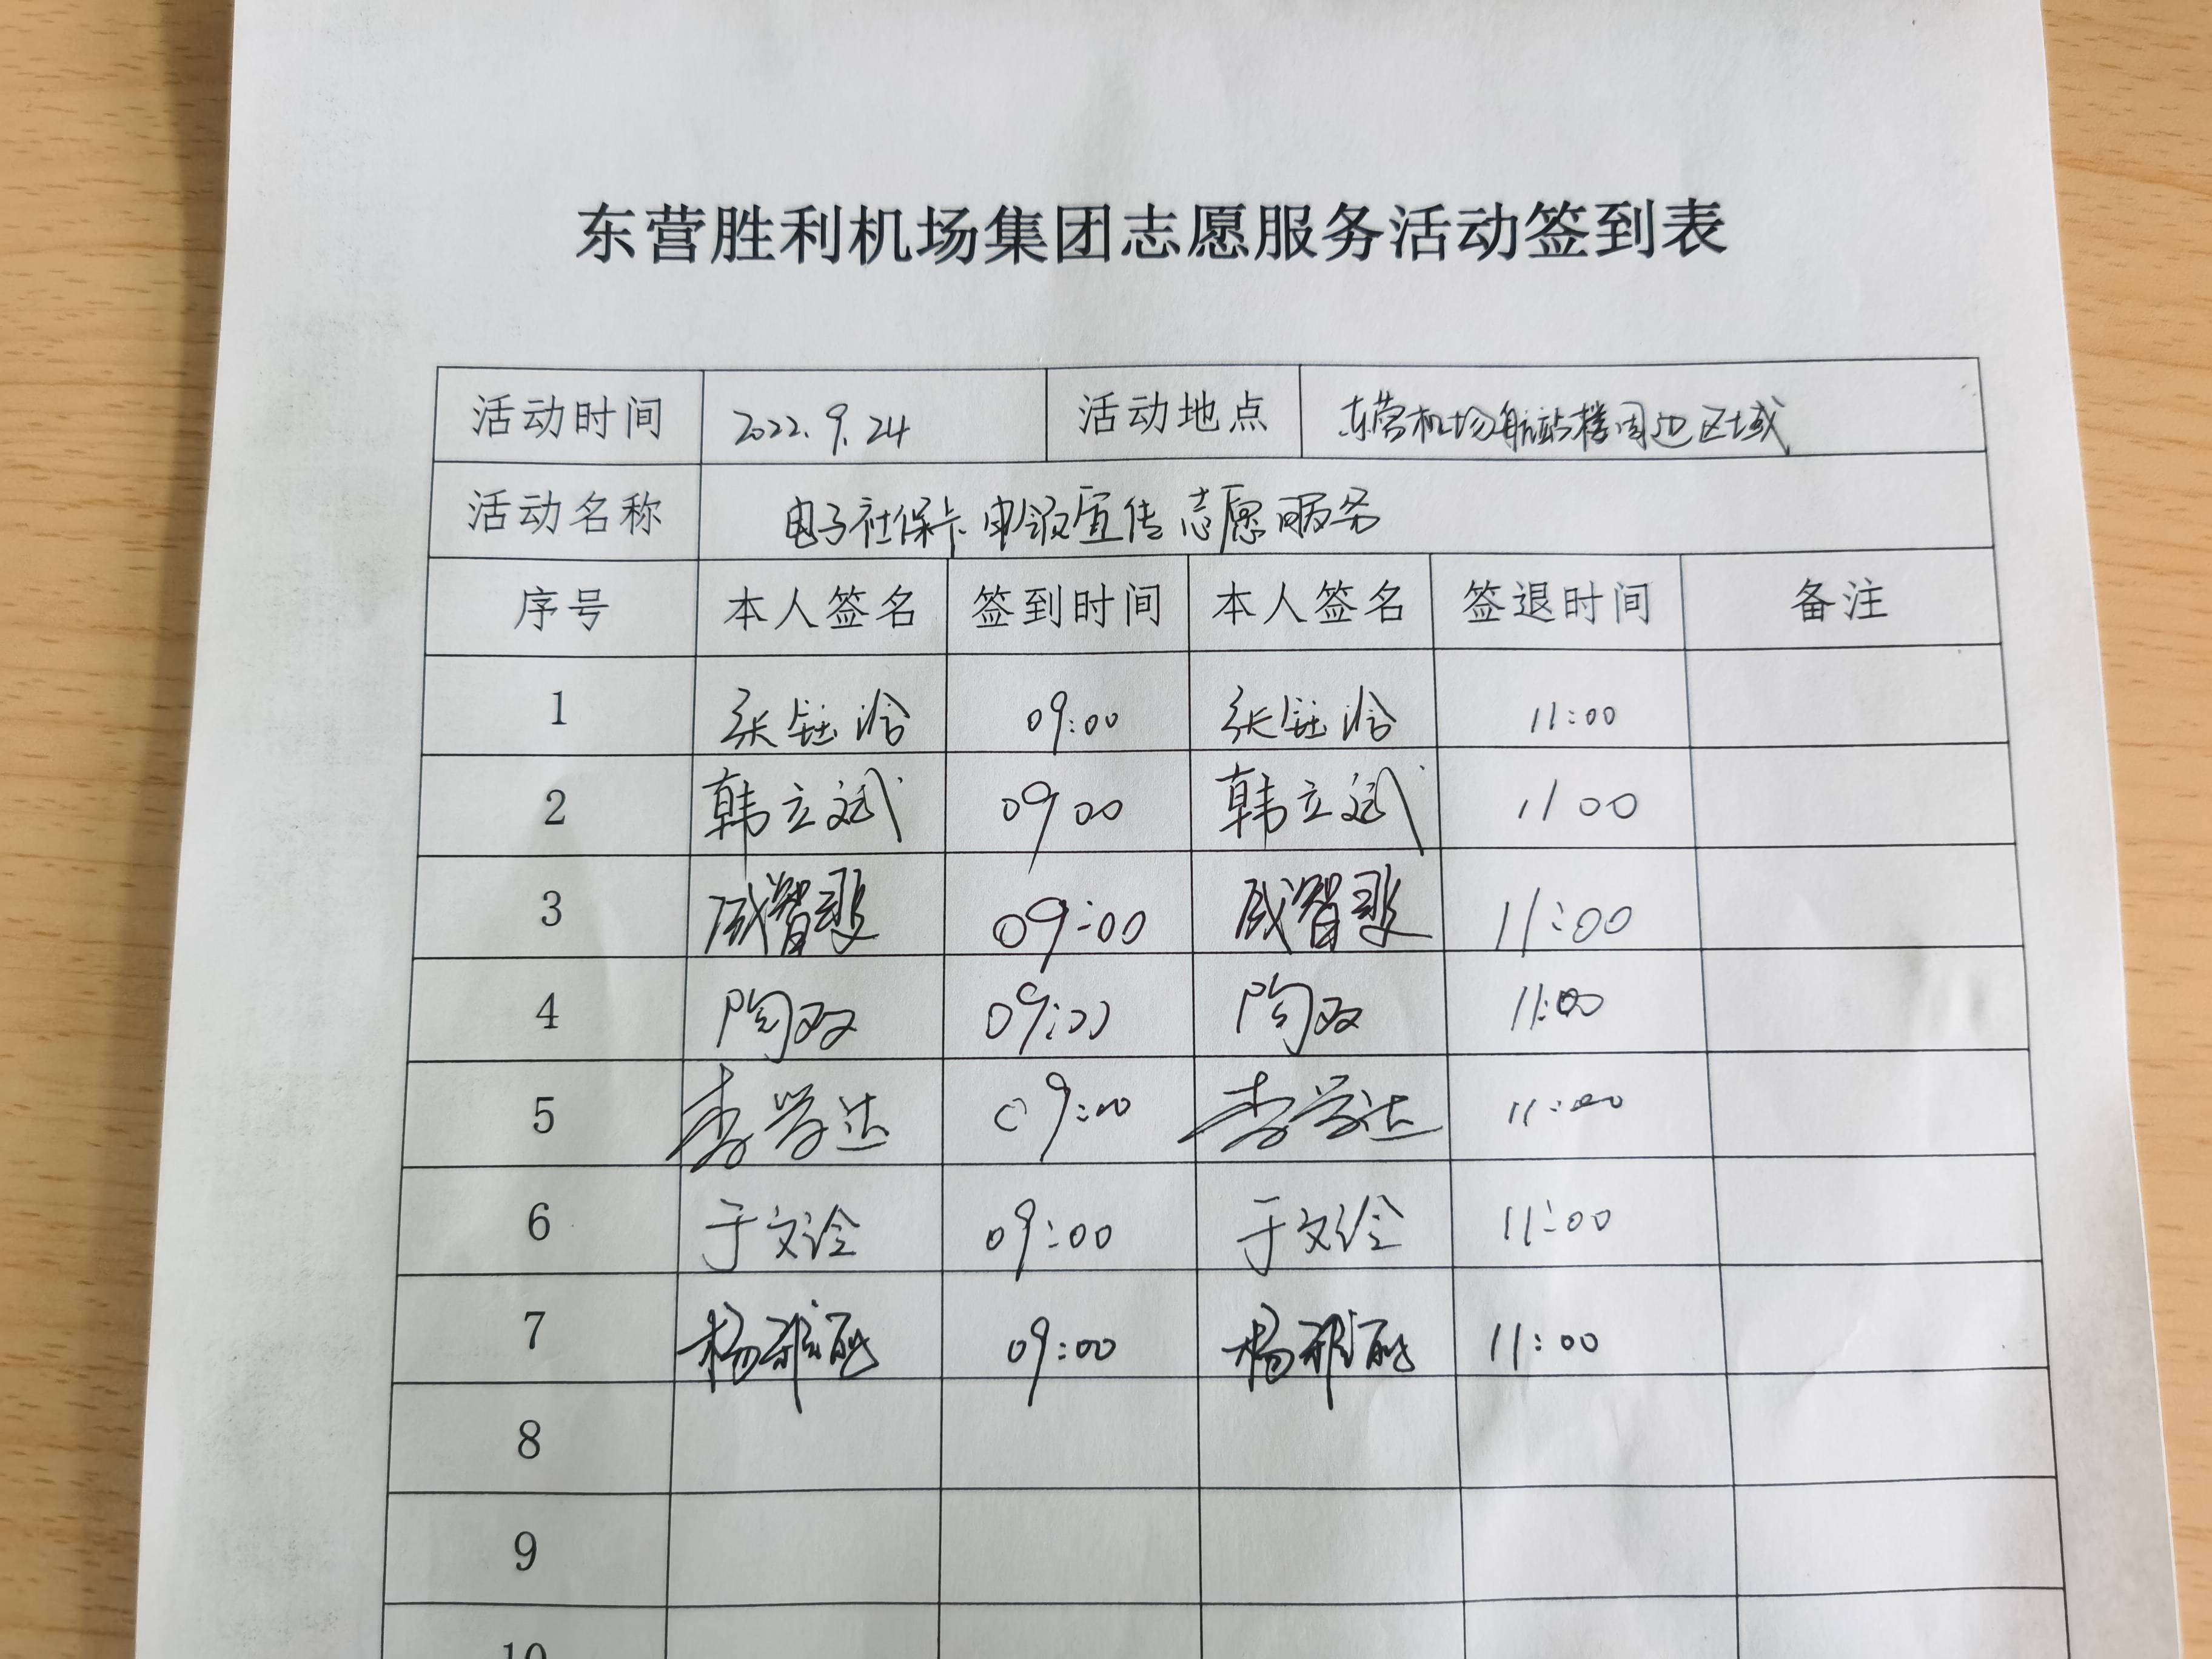 东营胜利机场集团志愿服务活动签到表
活动时间 2022.9.24 活动地点 东营机场航站楼周边区域
活动名称 电子社保卡申领宣传志愿服务
序号 本人签名 签到时间 本人签名 签退时间 备注
1 张钰涵 09:00 张钰涵 11:00
2 韩立斌 0900 韩立斌 1100
3 09:00 11:00
4 陶双 09:00 陶双 11:00
5 李学达 09:00 李学达 11:00
6 于文诠 09:00 于文诠 11:00
7 杨雅丽 09:00 杨雅丽 11:00
8
9
10